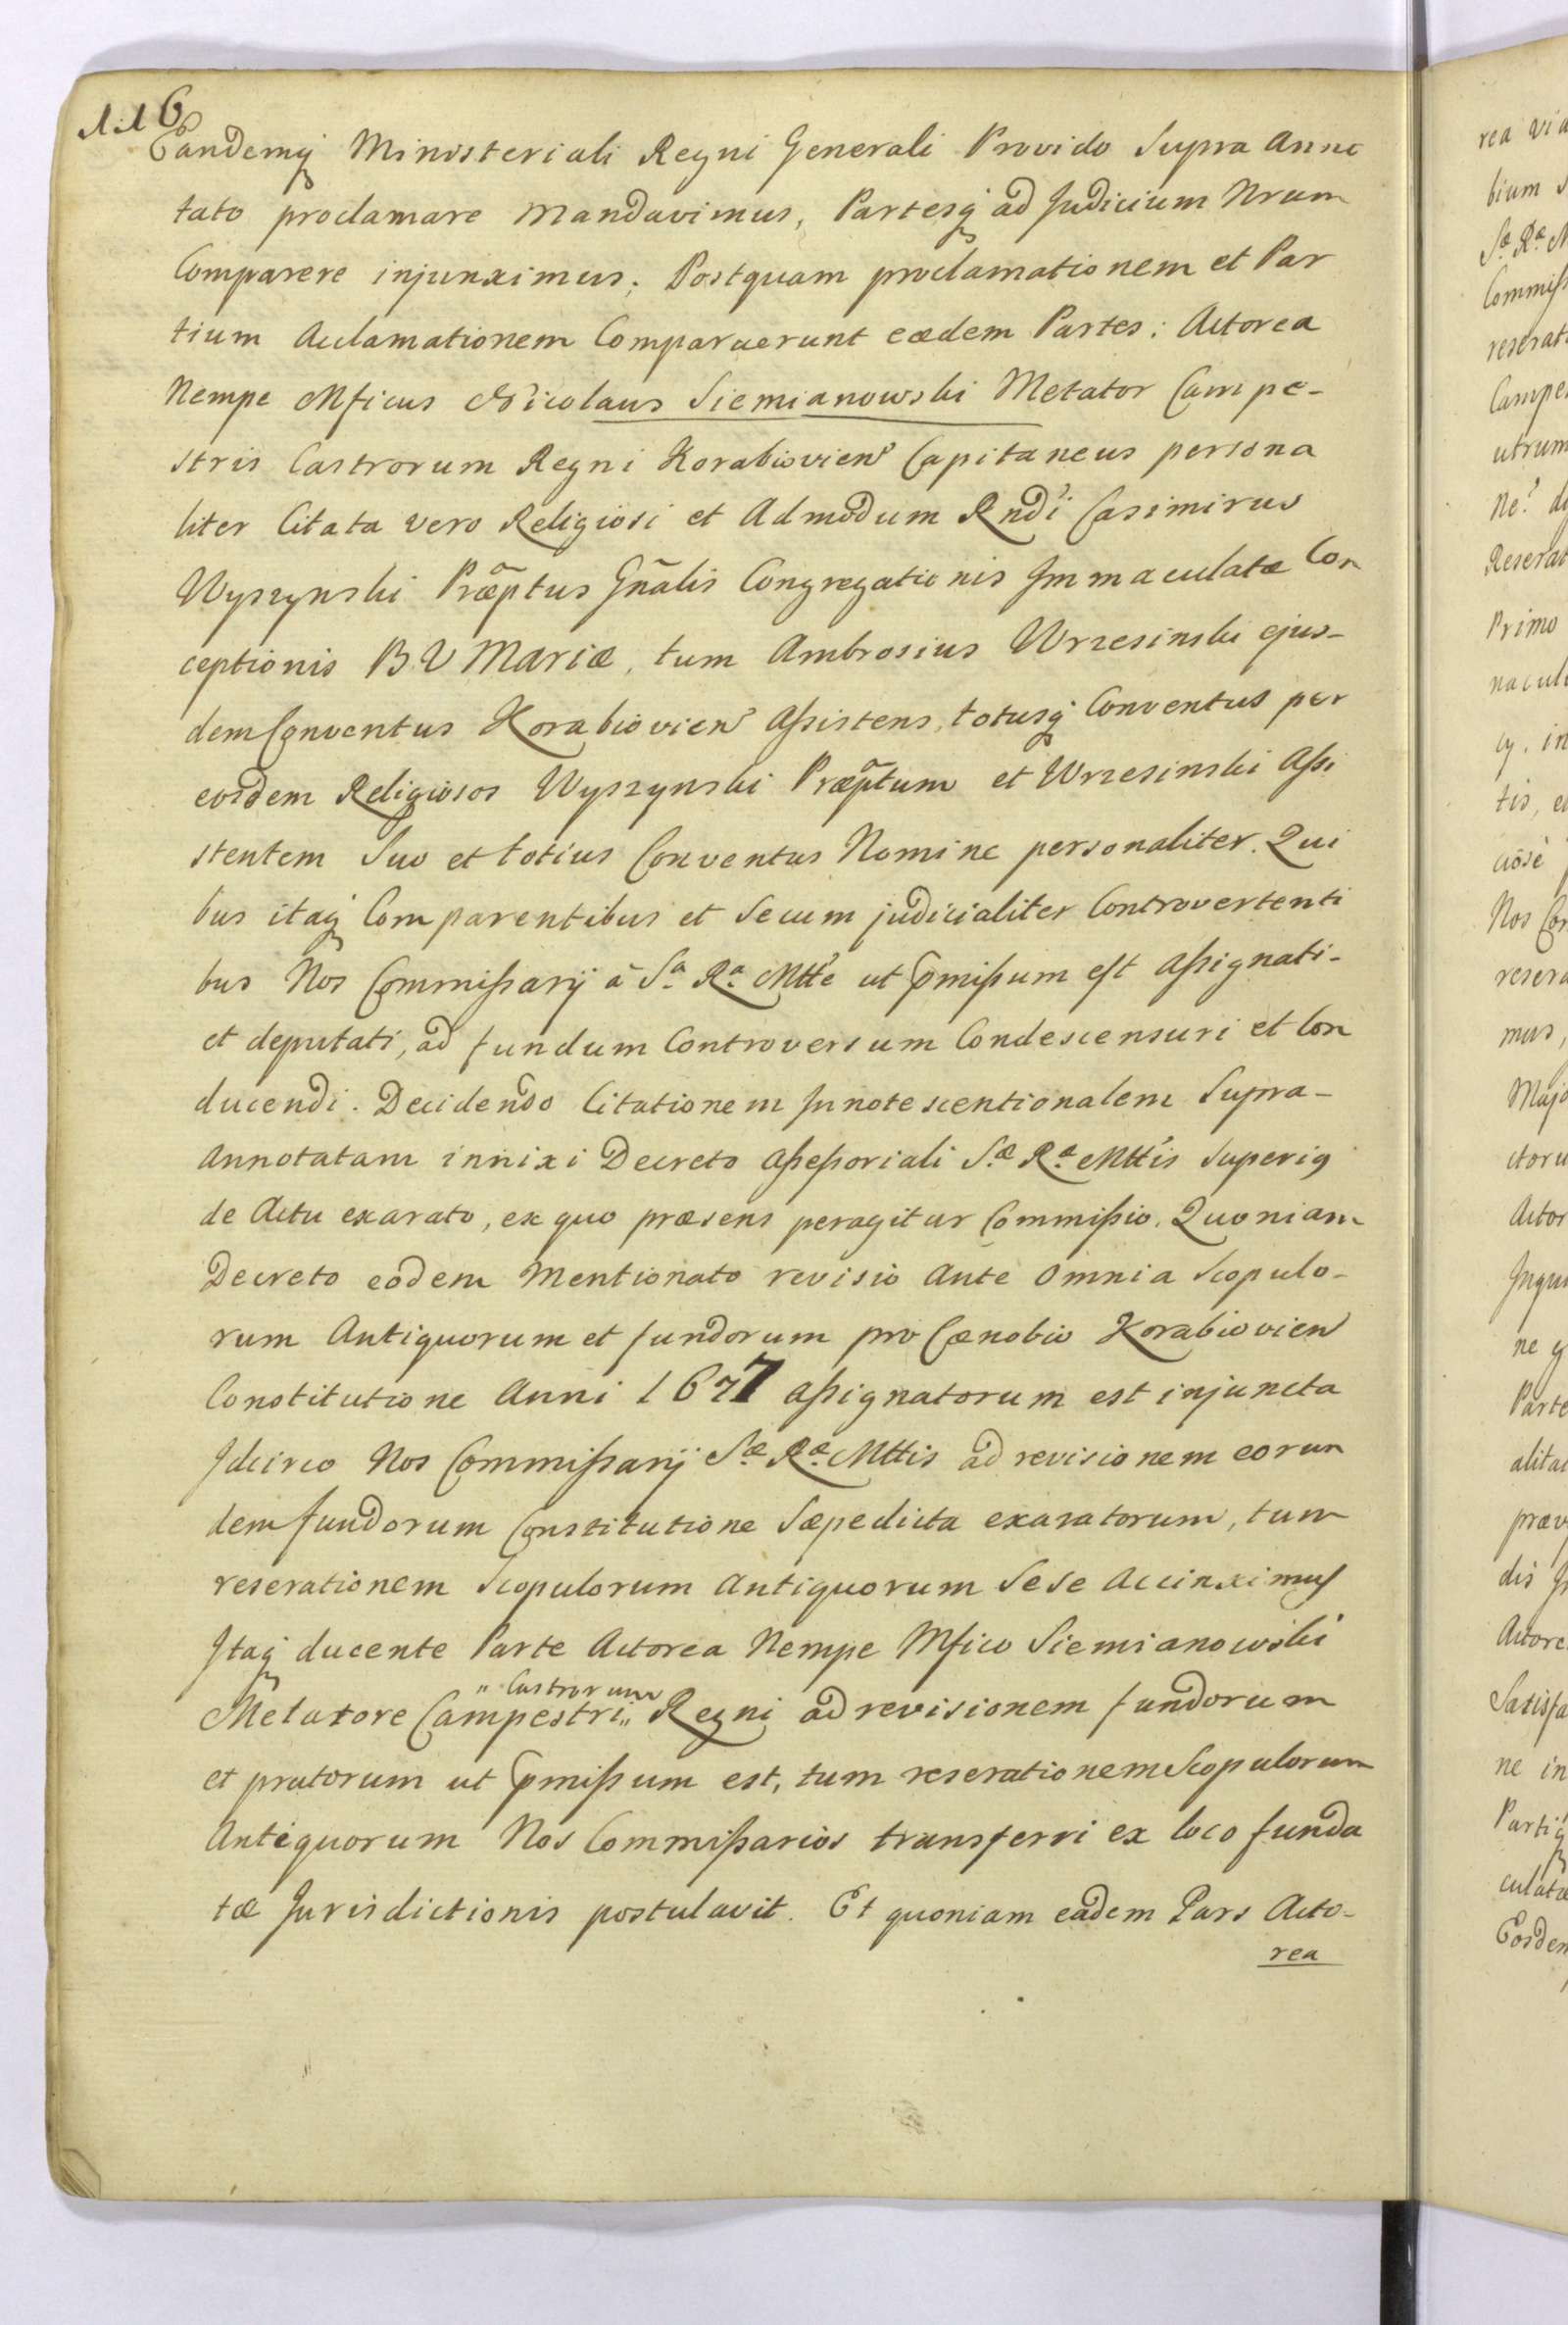 116
Eandemq Ministeriali Regni Generali Provido Supra Anno
tato proclamare mandavimus, Partesq ad Judicium Nrum
Comparere injunximus; Postquam proclamationem et Par
tium Acclamationem Comparuerunt eædem Partes: Actorea
Nempe Mficus Nicolaus Siemianowski Metator Campe-
stris Castrorum Regni Korabiovien Capitaneus persona
liter Citata vero Religiosi et Admodum Rndi Casimirus
Wyszynski Præptus Gñalis Congregationis Immaculatæ Con
ceptionis B V Mariæ, tum Ambrosius Wrzesinski ejus-
dem Conventus Korabiovien Aßistens, totusq Conventus per
eosdem Religiosos Wyszynski Præptum et Wrzesinski Aßi
stentem Suo et totius Conventus Nomine personaliter. Qui
bus itaq Comparentibus et Secum judicialiter Controvertenti
bus Nos Commißarij â Sa Ra Mtte ut pmißum est Aßignati-
et deputati, ad fundum Controversum Condescensuri et Con
ducendi. Decidendo Citationem Innotescentionalem Supra-
Annotatam innixi Decreto Aßeßoriali Sæ Ræ Mttis Superig
de Actu exarato, ex quo præsens peragitur Commißio. Quoniam
Decreto eodem Mentionato revisio Ante Omnia Scopulo-
rum Antiquorum et fundorum pro Cænobio Korabiovien
Constitutione Anni 1677 Aßignatorum est injuncta
Idcirco Nos Commißarij Sæ Ræ Mttis ad revisionem eorun
dem fundorum Constitutione Sæpedicta exaratorum, tum
reserationem Scopulorum Antiquorum Sese Accinximus
Itaq ducente Parte Actorea Nempe Mfico Siemianowski
" Castrorum
Metatore Campestri " Regni ad revisionem fundorum
et pratorum ut pmißum est, tum reserationem Scopulorum
Antiquorum Nos Commißarios transferri ex loco funda
tæ Jurisdictionis postulavit. Et quoniam eadem Pars Acto-
rea